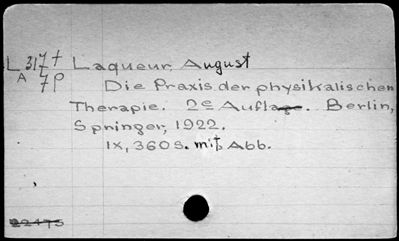 L 317+ Laqueur, August
A 7p
Die Praxis der physikalischen
Therapie. 2e Auflage. Berlin,
Springer, 1922.
IX, 360 s. mit Abb.
22475